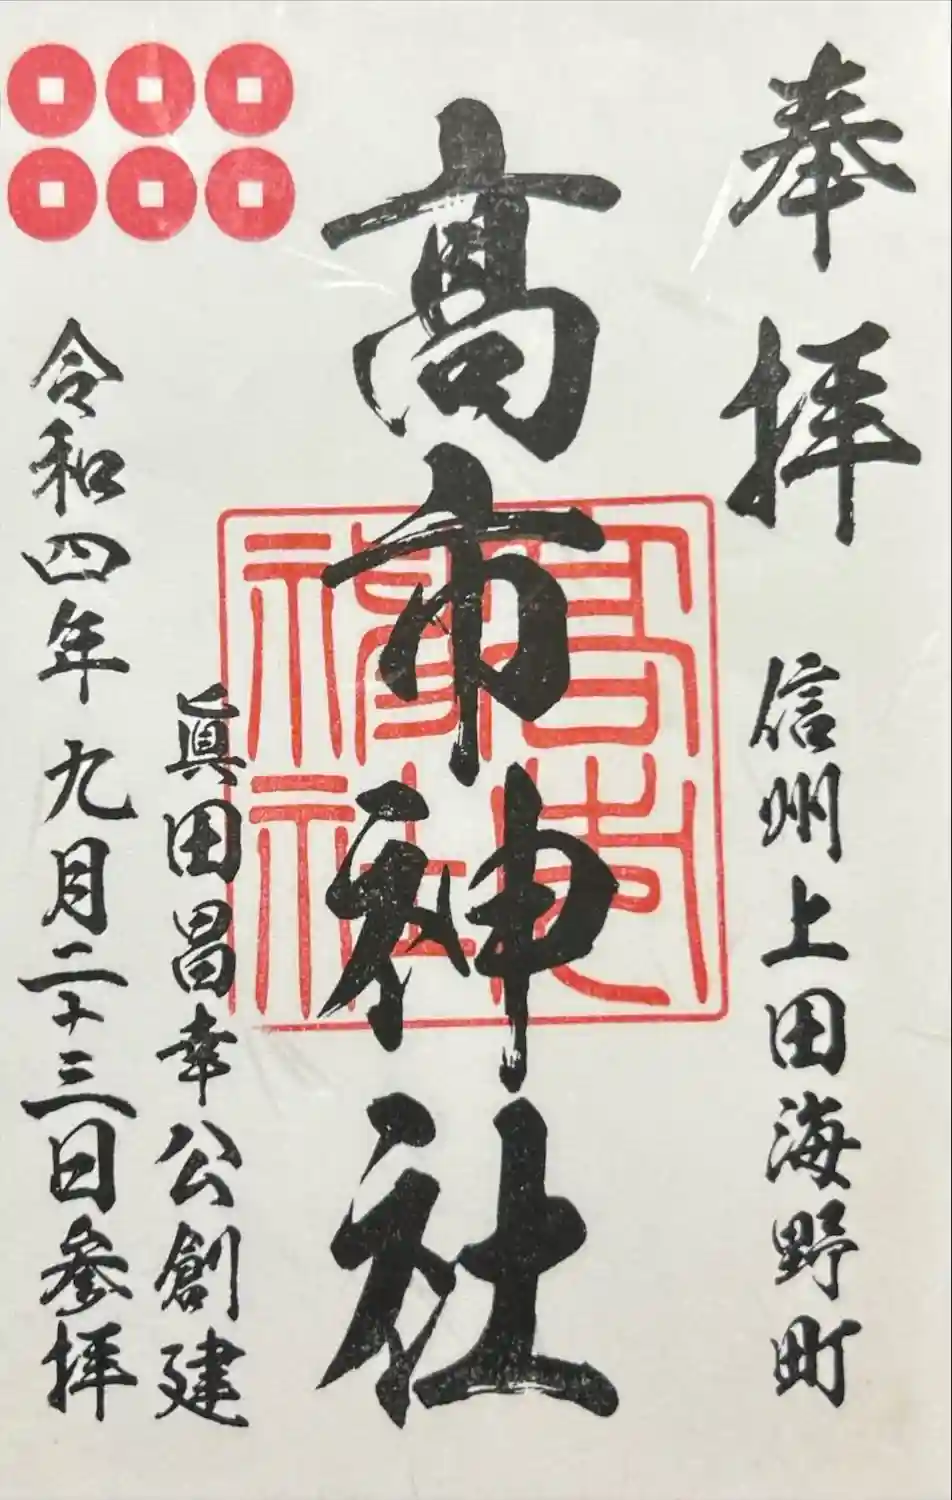 奉拝
信州上田海野町
高市神社
高市神社
眞田昌幸公創建
令和四年九月二十三日参拝